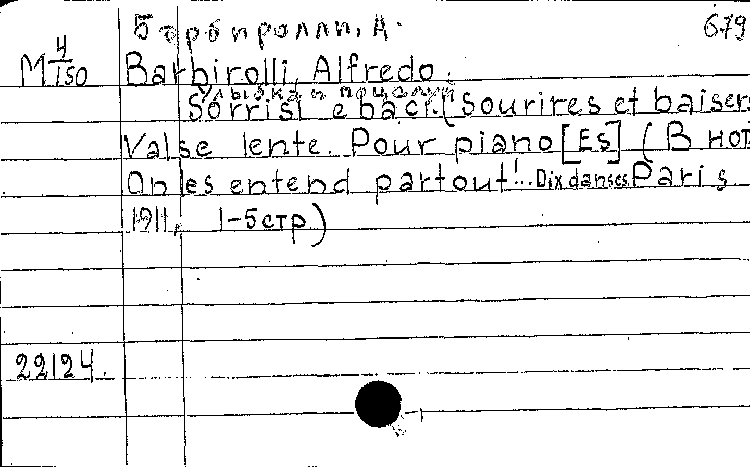 Барбиролли, А. 679
M 4/150 Barbirolli, Alfredo.
Улыбка и поцелуй
Sorrisi e baci. (Sourires et baisers
Valse lente. Pour piano [Es] (В нот
On les entend partout!.. Dix danses. Paris
1911, 1-5 стр.)
22124.